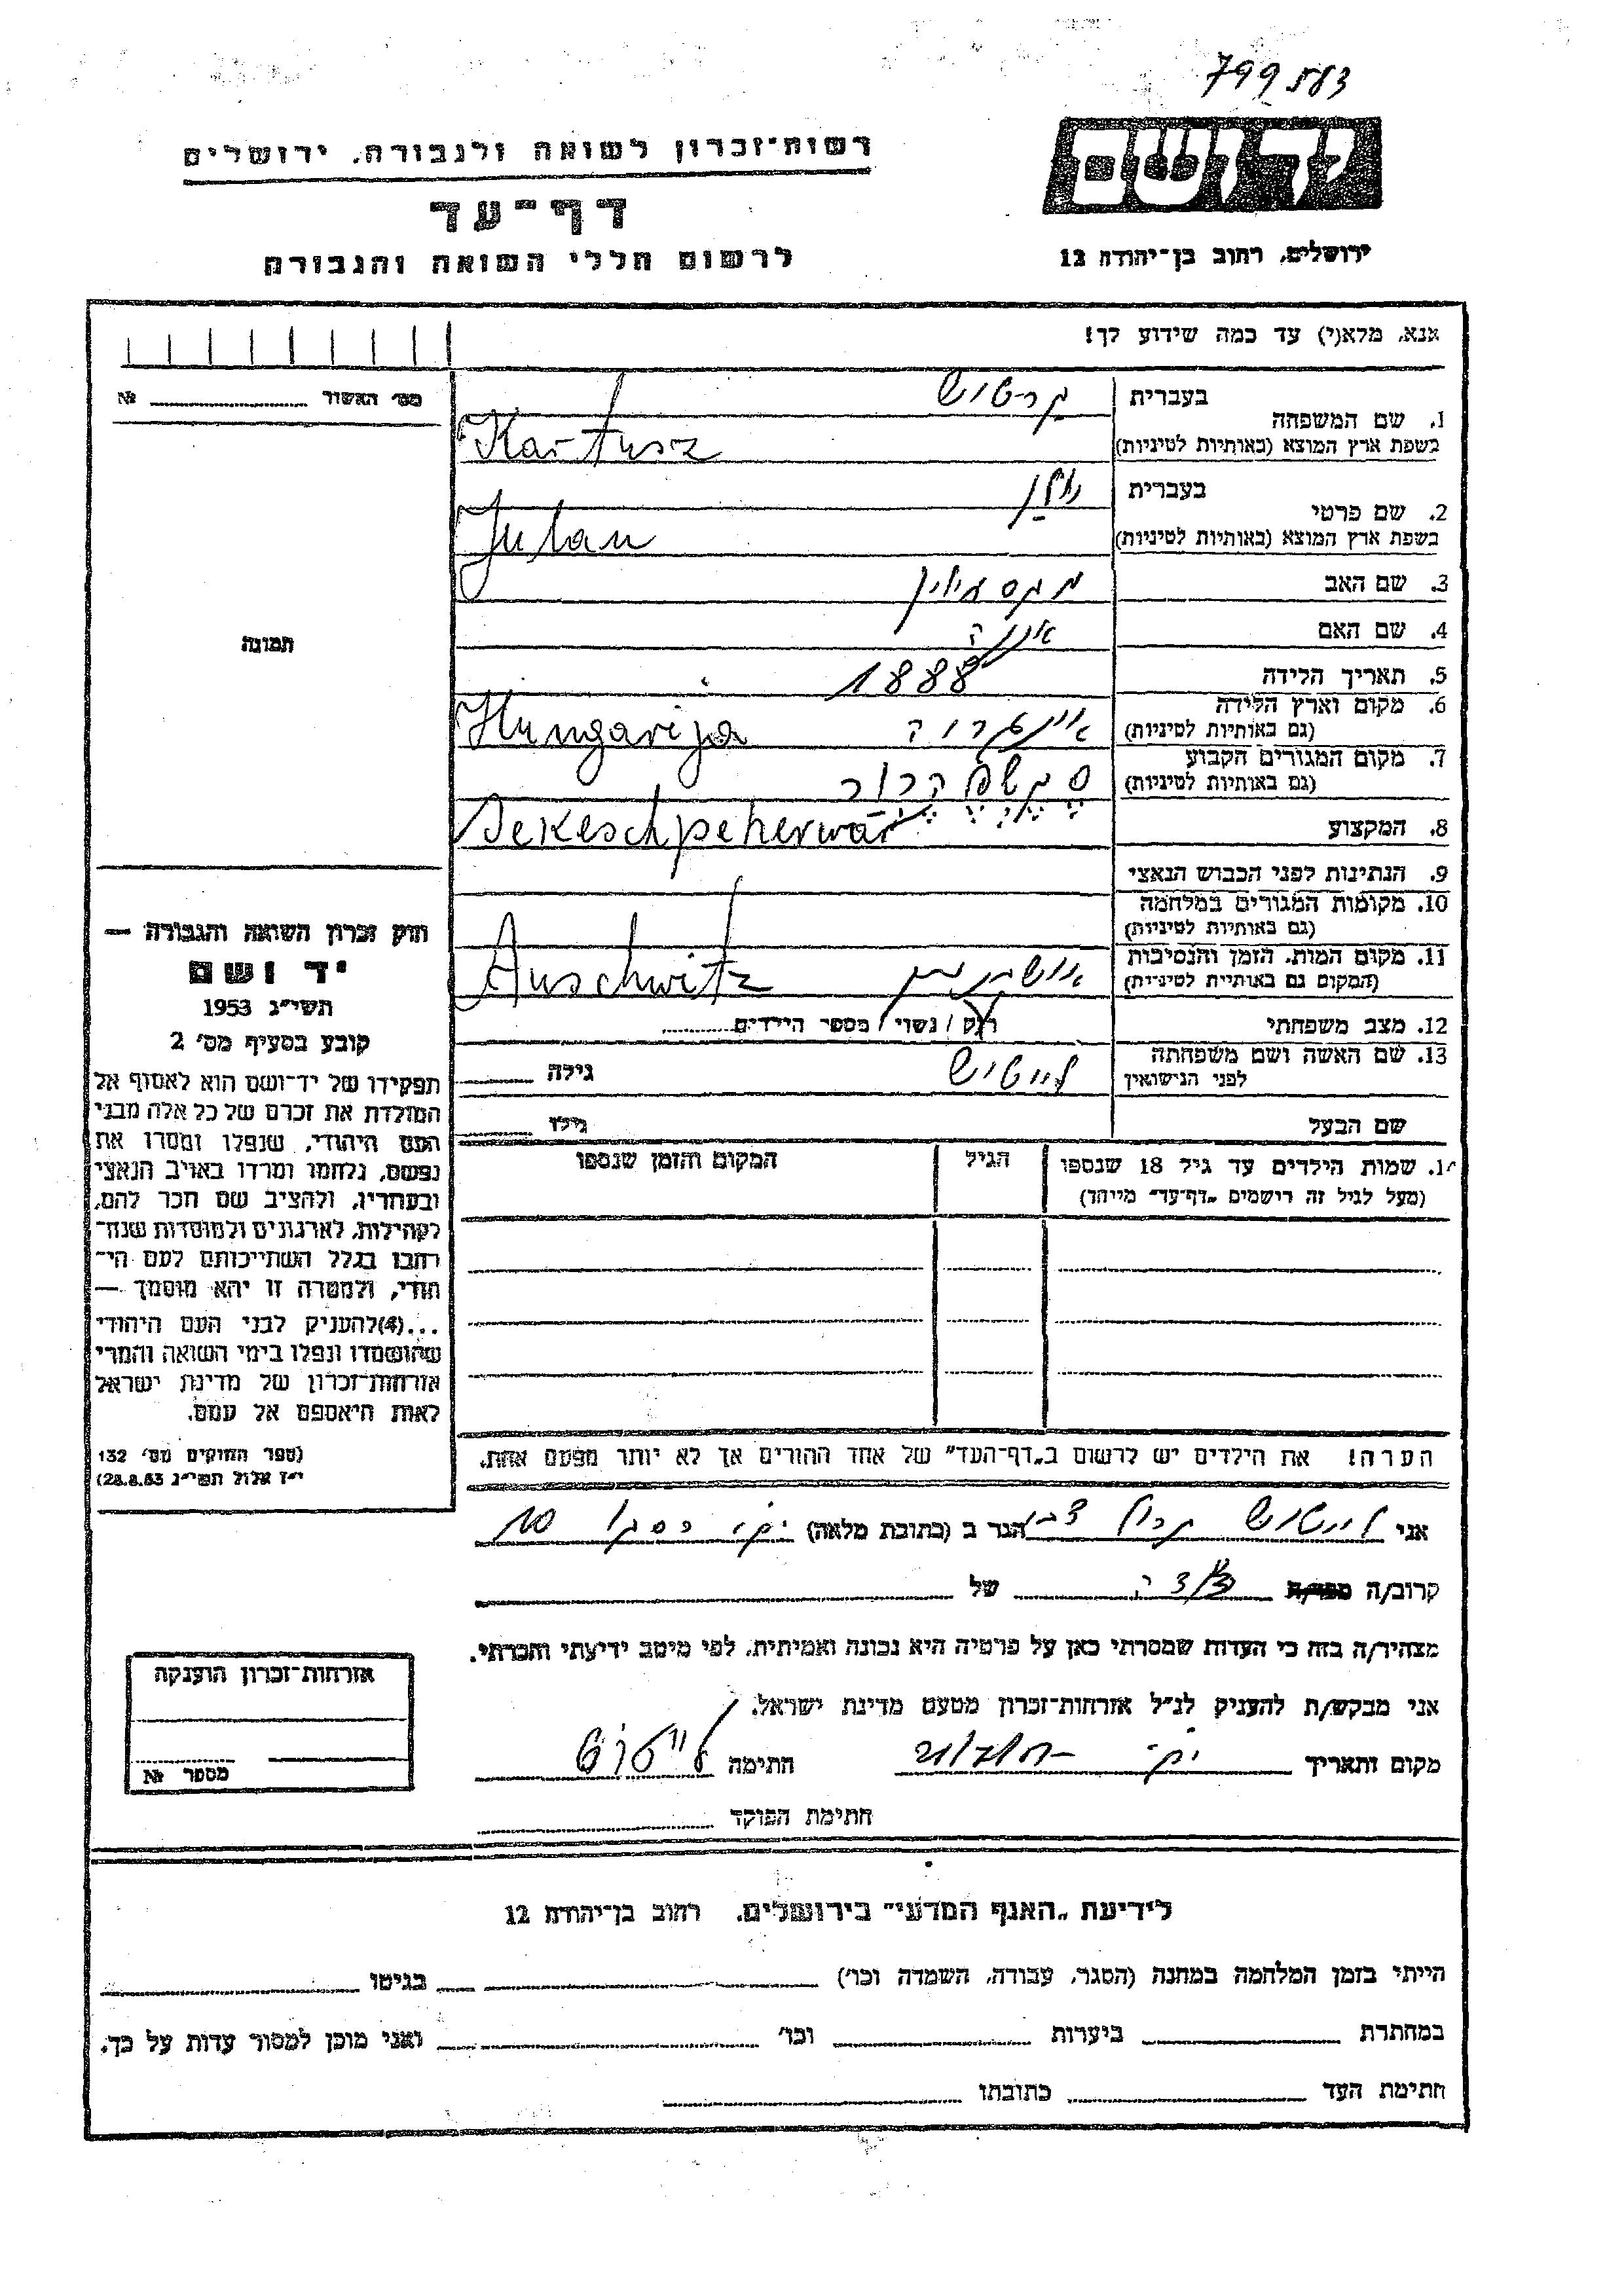 799583
רשות־זכרון לשואה ולגבורה, ירושלים
יד ושם
דף־עד
לרשום חללי השואה והגבורה
ירושלים, רחוב בן־יהודה 12
אנא, מלא(י) עד כמה שידוע לך!
מס׳ האשור № 
בעברית קרטוש
1. שם המשפחה
בשפת ארץ המוצא (באותיות לטיניות) Kartusz
בעברית
2. שם פרטי
בשפת ארץ המוצא (באותיות לטיניות)
3. שם האב מקסמילין
4. שם האם אננה
5. תאריך הלידה 1888
6. מקום וארץ הלידה
(גם באותיות לטיניות) אונגרוה Hungarija
7. מקום המגורים הקבוע
(גם באותיות לטיניות)
8. המקצוע Sekeschpeherwar
9. הנתינות לפני הכבוש הנאצי
10. מקומות המגורים במלחמה
(גם באותיות לטיניות)
11. מקום המות, הזמן והנסיבות
(המקום גם באותיות לטיניות) אושויץ Auschwitz
12. מצב משפחתי רוק / נשוי / מספר הילדים
13. שם האשה ושם משפחתה
לפני הנישואין גילה
שם הבעל גילו
תמונה
חוק זכרון השואה והגבורה —
יד ושם
תשי״ג 1953
קובע בסעיף מס׳ 2
תפקידו של יד־ושם הוא לאסוף אל
המולדת את זכרם של כל אלה מבני
העם היהודי, שנפלו ומסרו את
נפשם, נלחמו ומרדו באויב הנאצי
ובעוזריו, ולהציב שם וזכר להם,
לקהילות, לארגונים ולמוסדות שנח־
רבו בגלל השתייכותם לעם הי־
הודי, ולמטרה זו יהא מוסמך —
...(4) להעניק לבני העם היהודי
שהושמדו ונפלו בימי השואה והמרי
אזרחות־זכרון של מדינת ישראל
לאות היאספם אל עמם.
(ספר החוקים מס׳ 132
י״ז אלול תשי״ג 28.8.53)
14. שמות הילדים עד גיל 18 שנספו הגיל המקום והזמן שנספו
(מעל לגיל זה רושמים „דף־עד״ מיוחד)
הערה! את הילדים יש לרשום ב„דף־העד״ של אחד ההורים אך לא יותר מפעם אחת.
אני הגר ב (כתובת מלאה)
קרוב/ה של
מצהיר/ה בזה כי העדות שמסרתי כאן על פרטיה היא נכונה ואמיתית, לפי מיטב ידיעתי והכרתי.
אני מבקש/ת להעניק לנ״ל אזרחות־זכרון מטעם מדינת ישראל.
מקום ותאריך חתימה
חתימת הפוקד
אזרחות־זכרון הוענקה
מספר №
לידיעת „האגף המדעי״ בירושלים, רחוב בן־יהודה 12
הייתי בזמן המלחמה במחנה (הסגר, עבודה, השמדה וכו׳) בגיטו
במחתרת ביערות וכו׳ ואני מוכן למסור עדות על כך.
חתימת העד כתובתו